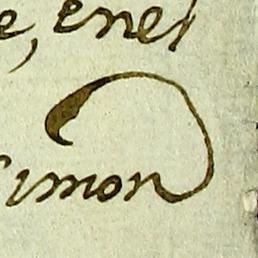 e, enel
Simon